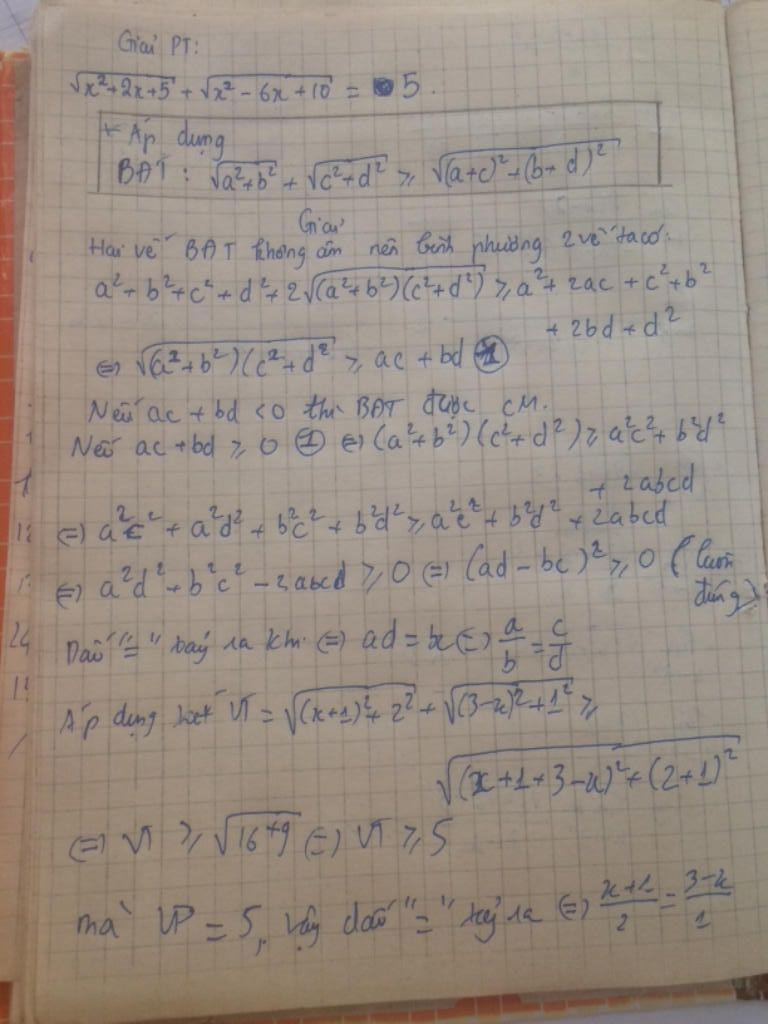 Giải PT:
√(x²+2x+5) + √(x²-6x+10) = 5.
* Áp dụng
BĐT: √(a²+b²) + √(c²+d²) ≥ √((a+c)²+(b+d)²)
Giải
Hai vế BĐT không âm nên bình phương 2 vế ta có:
a²+b²+c²+d²+2√((a²+b²)(c²+d²)) ≥ a²+2ac+c²+b²
+2bd+d²
⇔ √((a²+b²)(c²+d²)) ≥ ac+bd ①
Nếu ac+bd <0 thì BĐT được CM.
Nếu ac+bd ≥ 0 ① ⇔ (a²+b²)(c²+d²) ≥ a²c²+b²d²
+2abcd
⇔ a²c²+a²d²+b²c²+b²d² ≥ a²c²+b²d²+2abcd
⇔ a²d²+b²c²-2abcd ≥ 0 ⇔ (ad-bc)² ≥ 0 (luôn
đúng)
Dấu "=" xảy ra khi ⇔ ad = bc ⇔ a/b = c/d
Áp dụng VT = √((x+1)²+2²) + √((3-x)²+1²) ≥
√((x+1+3-x)²+(2+1)²)
⇔ VT ≥ √(16+9) ⇔ VT ≥ 5
mà VP = 5, vậy dấu "=" xảy ra ⇔ (x+1)/2 = (3-x)/1